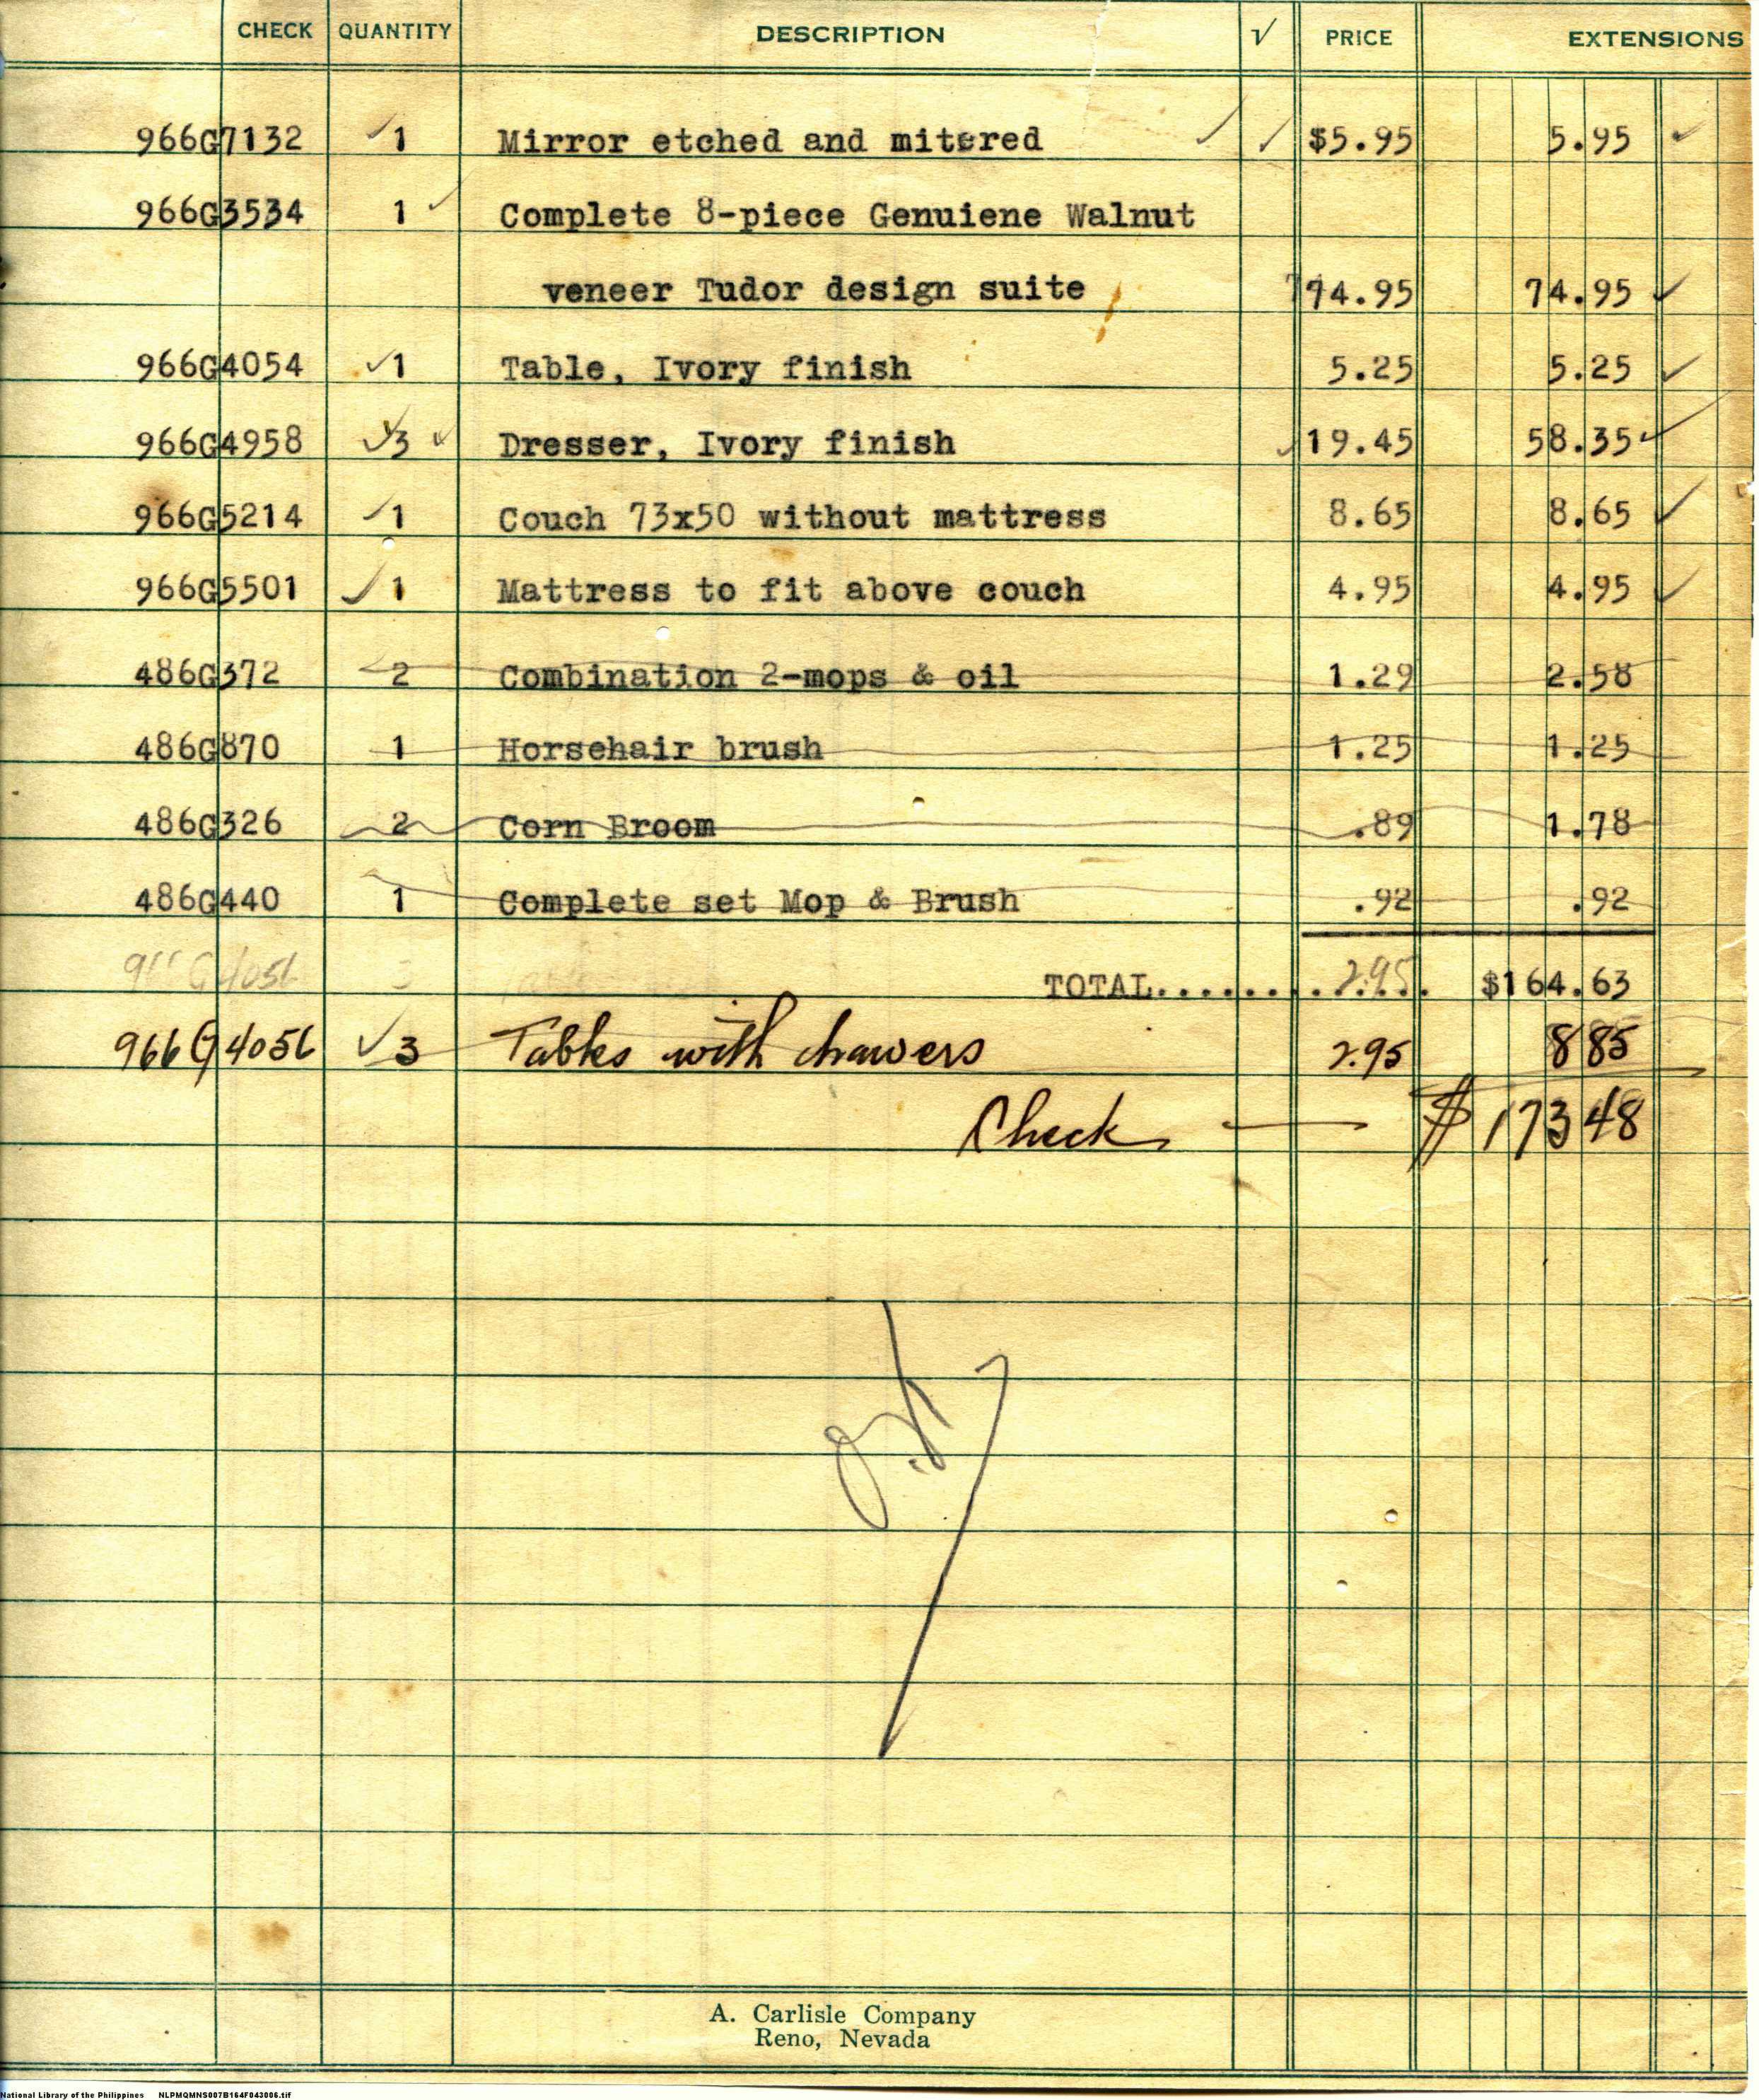 CHECK QUANTITY DESCRIPTION √ PRICE EXTENSIONS
966G7132 1 Mirror etched and mitered $5.95 5.95
966G3534 1 Complete 8-piece Genuiene Walnut
veneer Tudor design suite 74.95 74.95
966G4054 1 Table, Ivory finish 5.25 5.25
966G4958 3 Dresser, Ivory finish 19.45 58.35
966G5214 1 Couch 73x50 without mattress 8.65 8.65
966G5501 1 Mattress to fit above couch 4.95 4.95
486G372 2 Combination 2-mops & oil 1.29 2.58
486G870 1 Horsehair brush 1.25 1.25
486G326 2 Corn Broom .89 1.78
486G440 1 Complete set Mop & Brush .92 .92
966G4056 3 TOTAL.............. 2.95 $164.63
966G4056 3 Tables with drawers 2.95 8 85
Check — $173 48
O.K.
A. Carlisle Company
Reno, Nevada
National Library of the Philippines NLPMQMNS007B164F043006.tif